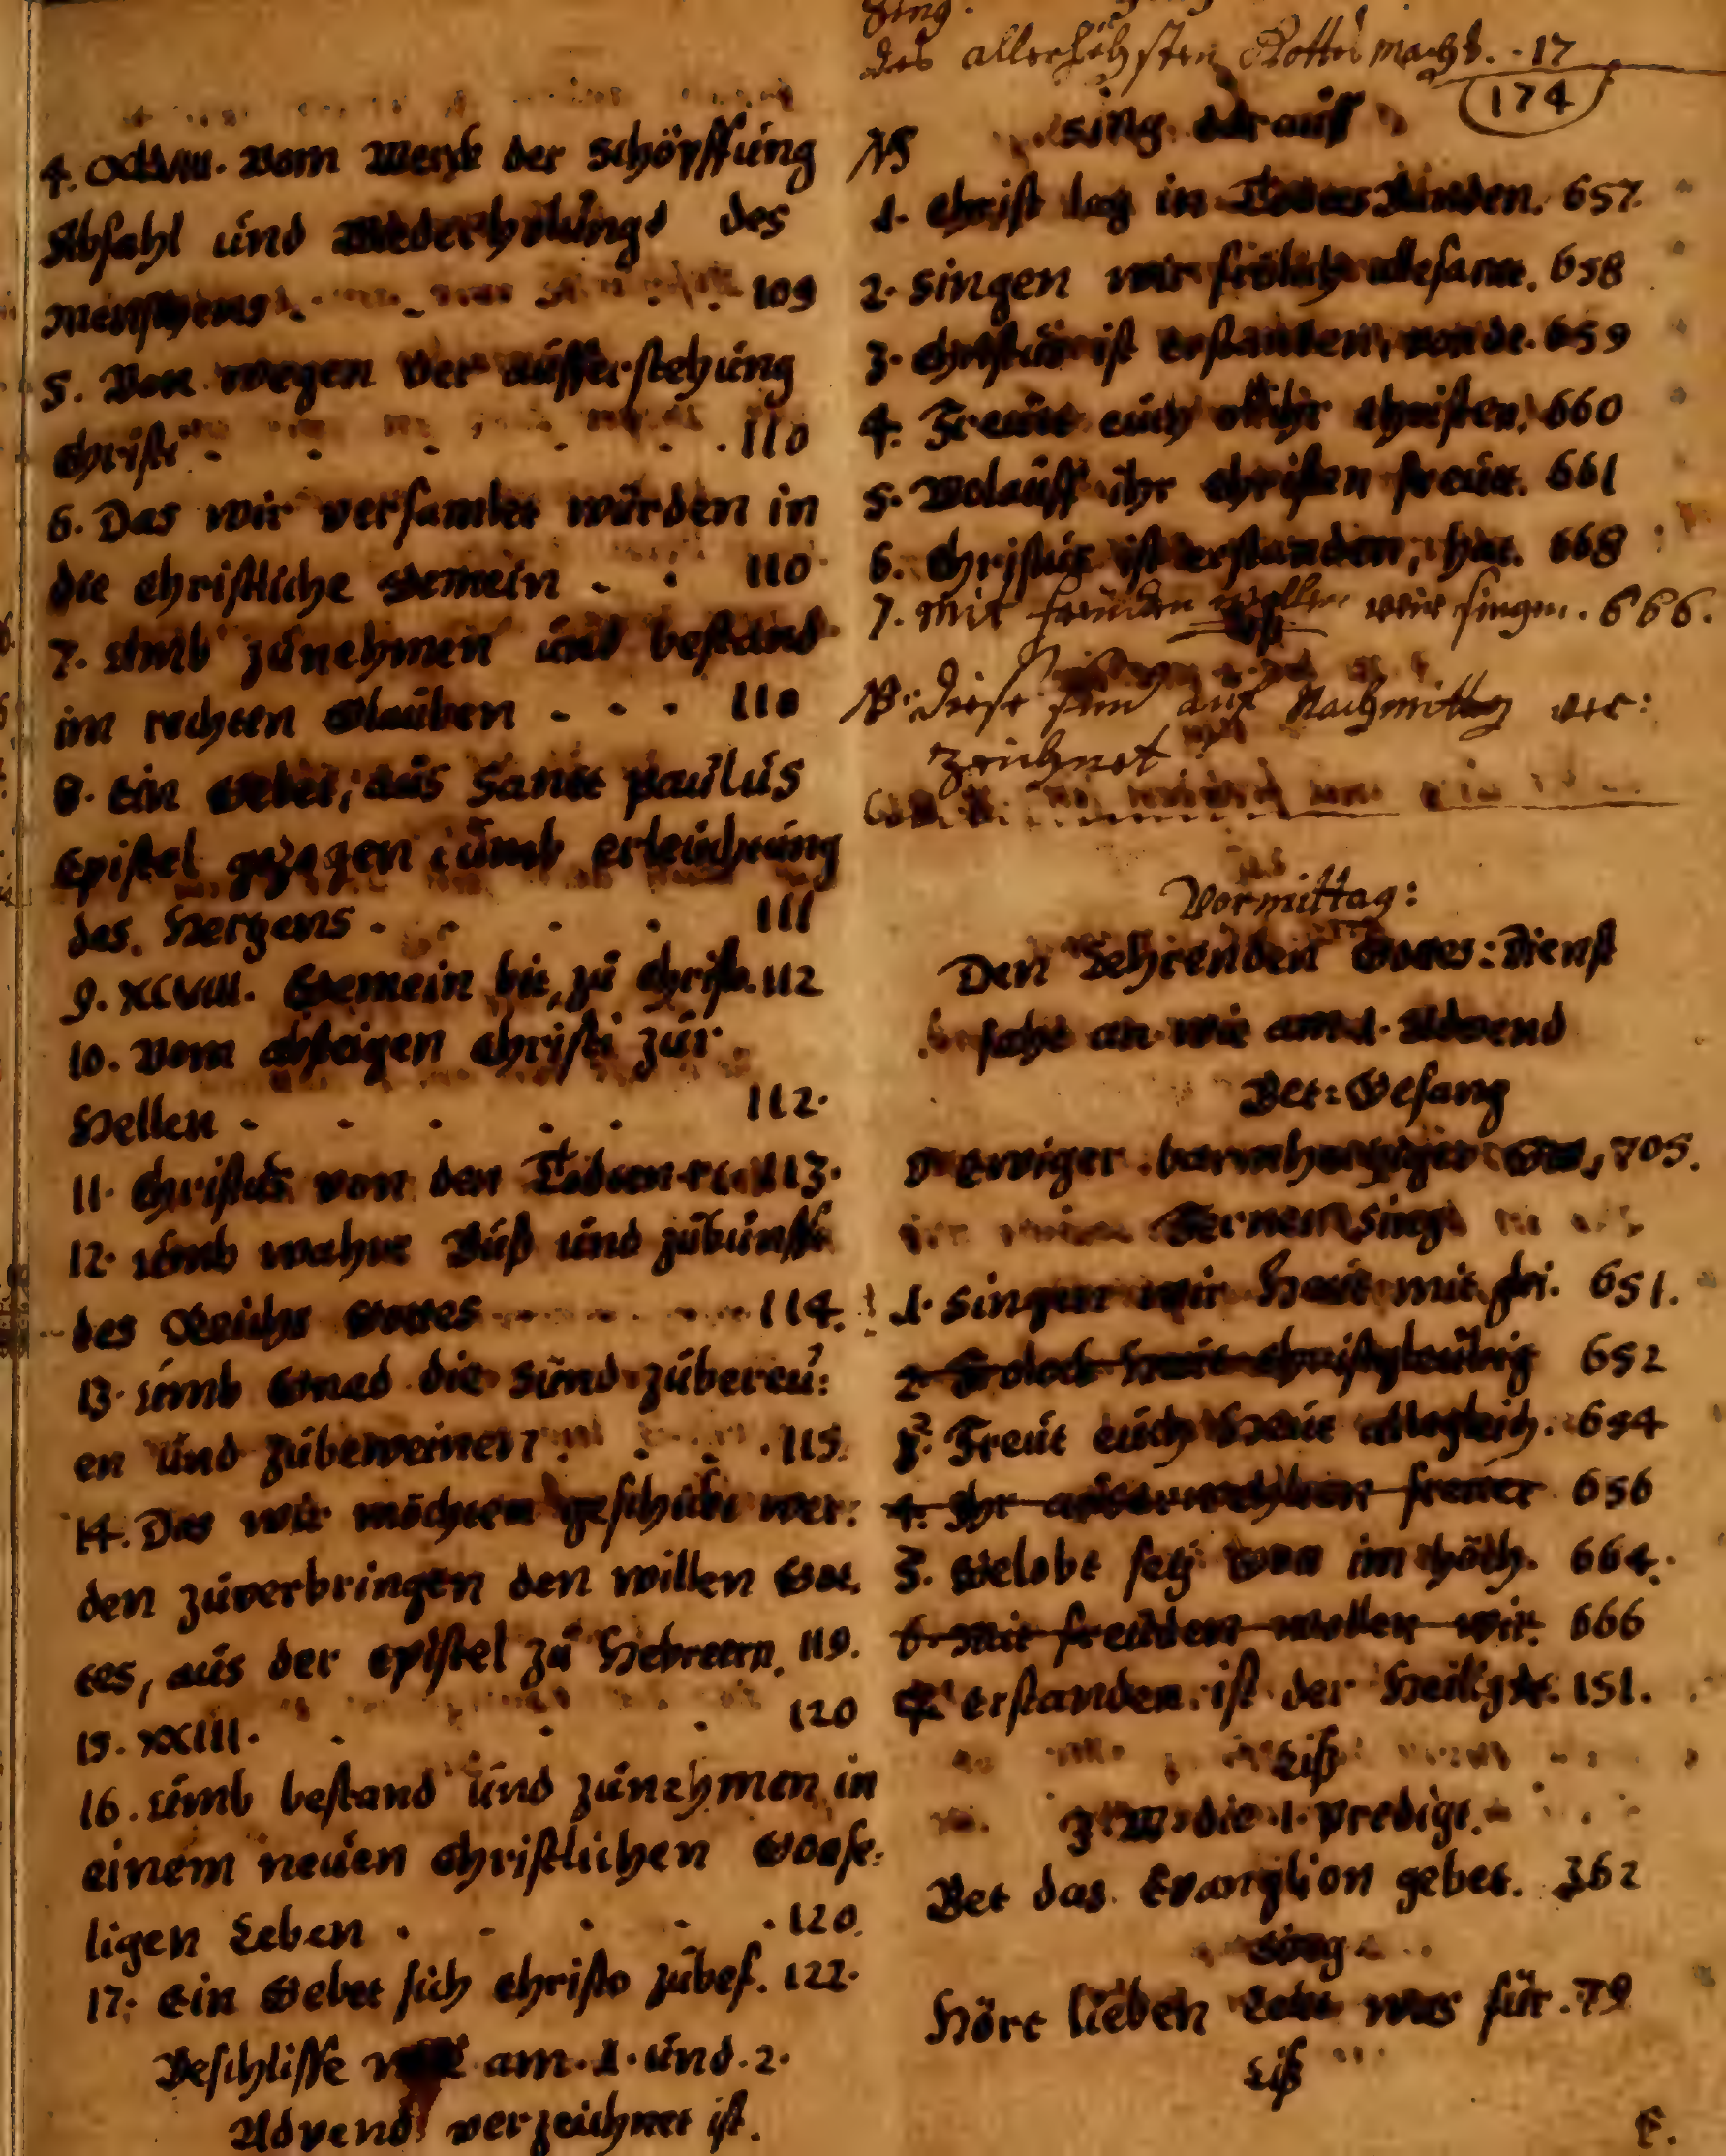 4. XXXVIII. Vom Werck der schöpffung
Abfahl und Wiederholung des
Menschens 109
5. Von wegen der aufferstehung
Christi . . . . . 110
6. Das wir versamlet würden in
die Christliche Gemein . . 110
7. Umb zunehmen und bestand
im rechten Glauben . . . 110
8. Ein Gebet, aus Sanct Paulus
Epistel gezogen umb erleuchtung
des Hertzens . . . 111
9. XCVIII. Gemein bit, zu Christo. 112
10. Vom absteigen Christi zur
Hellen . . . . . 112.
11. Christus von den Todten 113.
12. Umb wahre Buß und zukunfft
des Reichs Gottes 114.
13. Umb Gnad die sünd zubereü:
en und zubeweinen . . . 115.
14. Das wir möchten geschickt wer:
den zuverbringen den willen Got,
tes, aus der Epistel zu Hebreern. 119.
15. XXIII. . . . 120
16. Umb bestand und zunehmen in
einem neuen Christlichen Gotse:
ligen Leben . . . . 120.
17. Ein Gebet sich Christo zubef. 122.
Beschlisse am. 1. und. 2.
Advend verzeichnet ist.
Sing.
des allerhöhsten Gottes macht. . 17
174
NB sing darauff
1. Christ lag in Todtes Banden. 657.
2. Singen wir frölich allesamt. 658
3. Christus ist erstanden, von de. 659
4. Freüt eüch all ihr Christen. 660
5. Wolauff ihr Christen freüt. 661
6. Christus ist erstanden, hat. 668
7. Mit freuden wollen wir singen. 666.
NB. diese sind auf Nachmittag ver:
zeichnet
Vormittag:
Den Lehrenden Gottes: Dienst
fahe an wie am 1. Advend
Bet: Gesang
O Ewiger barmhertziger Gott, 705.
Ferner sing
1. Singen wir Heüt mit fri. 651.
2. Frolock Heüt Christgleübig 652
2. Freüt eüch Heüt allegleich. 654
4. Ihr auserwehlten freüet 656
3. Gelobt seÿ Gott im höch. 664.
6. Mit freüden wollen wir. 666
4. Erstanden ist der Heilig 151.
Liß
Z. W. die 1. Predigt.
Bet das Evanglion gebet. 362
Sing
Hört lieben Leut was für. 79
Liß
E.